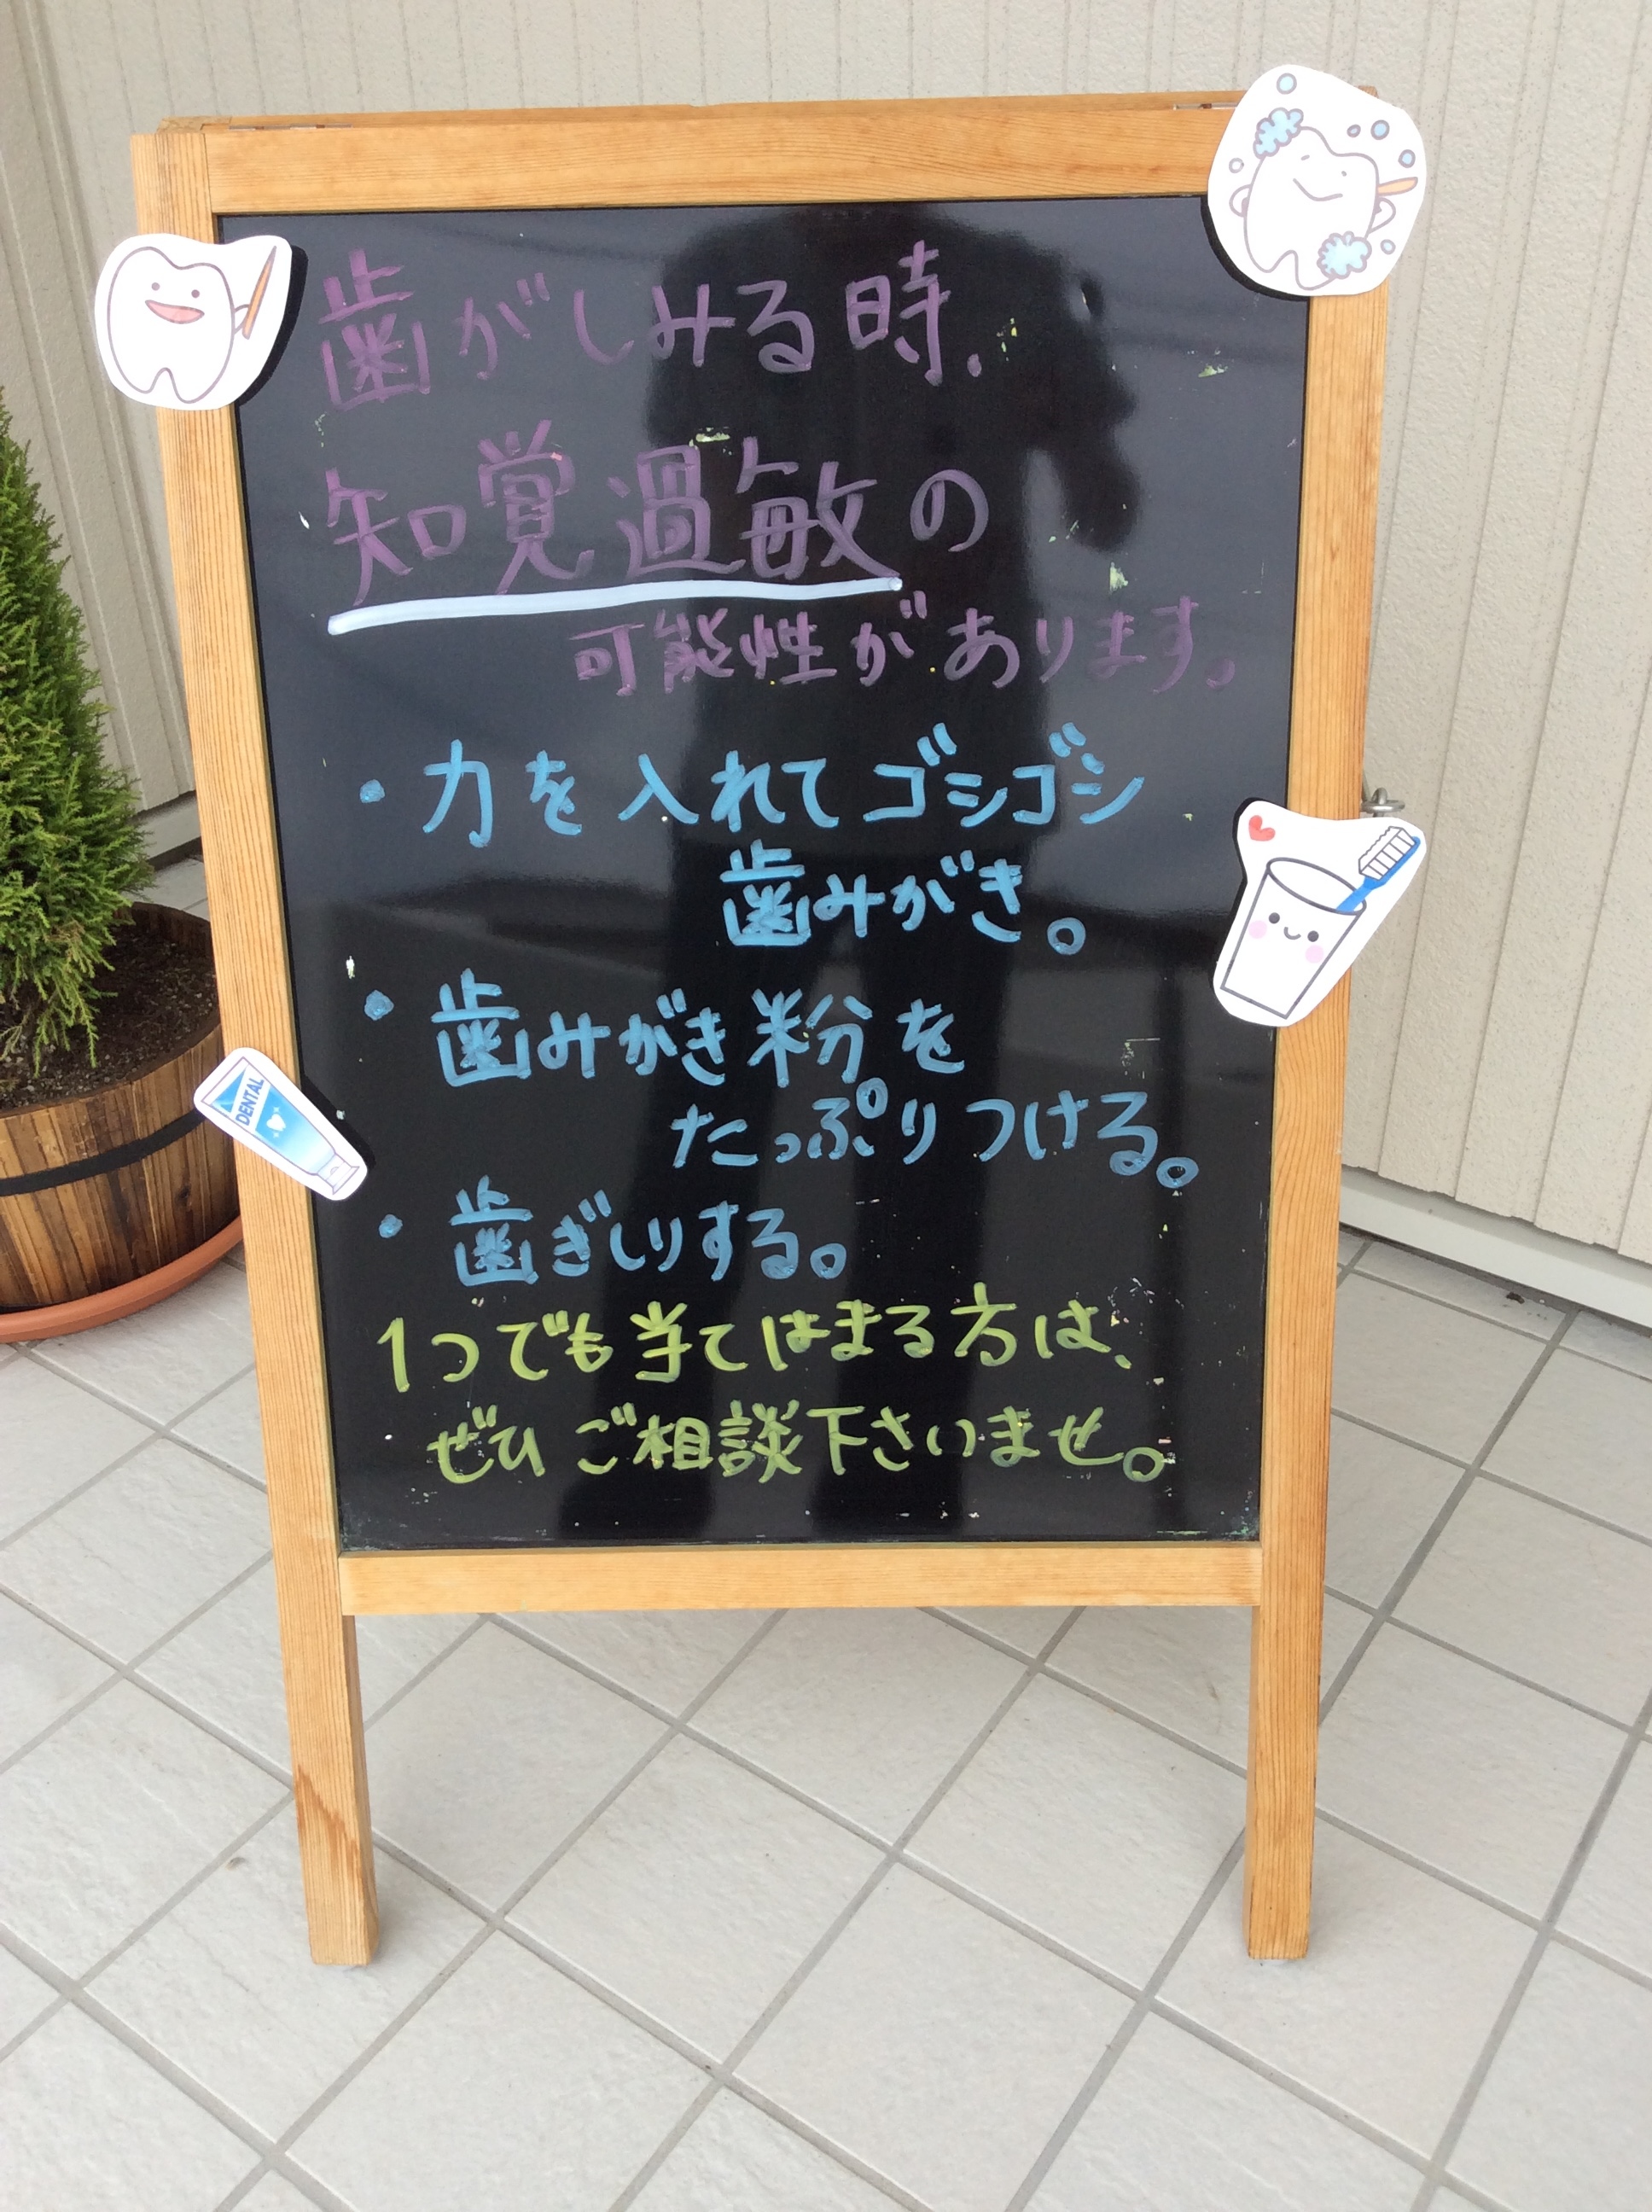 歯がしみる時、
知覚過敏の
可能性があります。
・力を入れてゴシゴシ
歯みがき。
・歯みがき粉を
たっぷりつける。
・歯ぎしりする。
1つでも当てはまる方は、
ぜひご相談下さいませ。
DENTAL